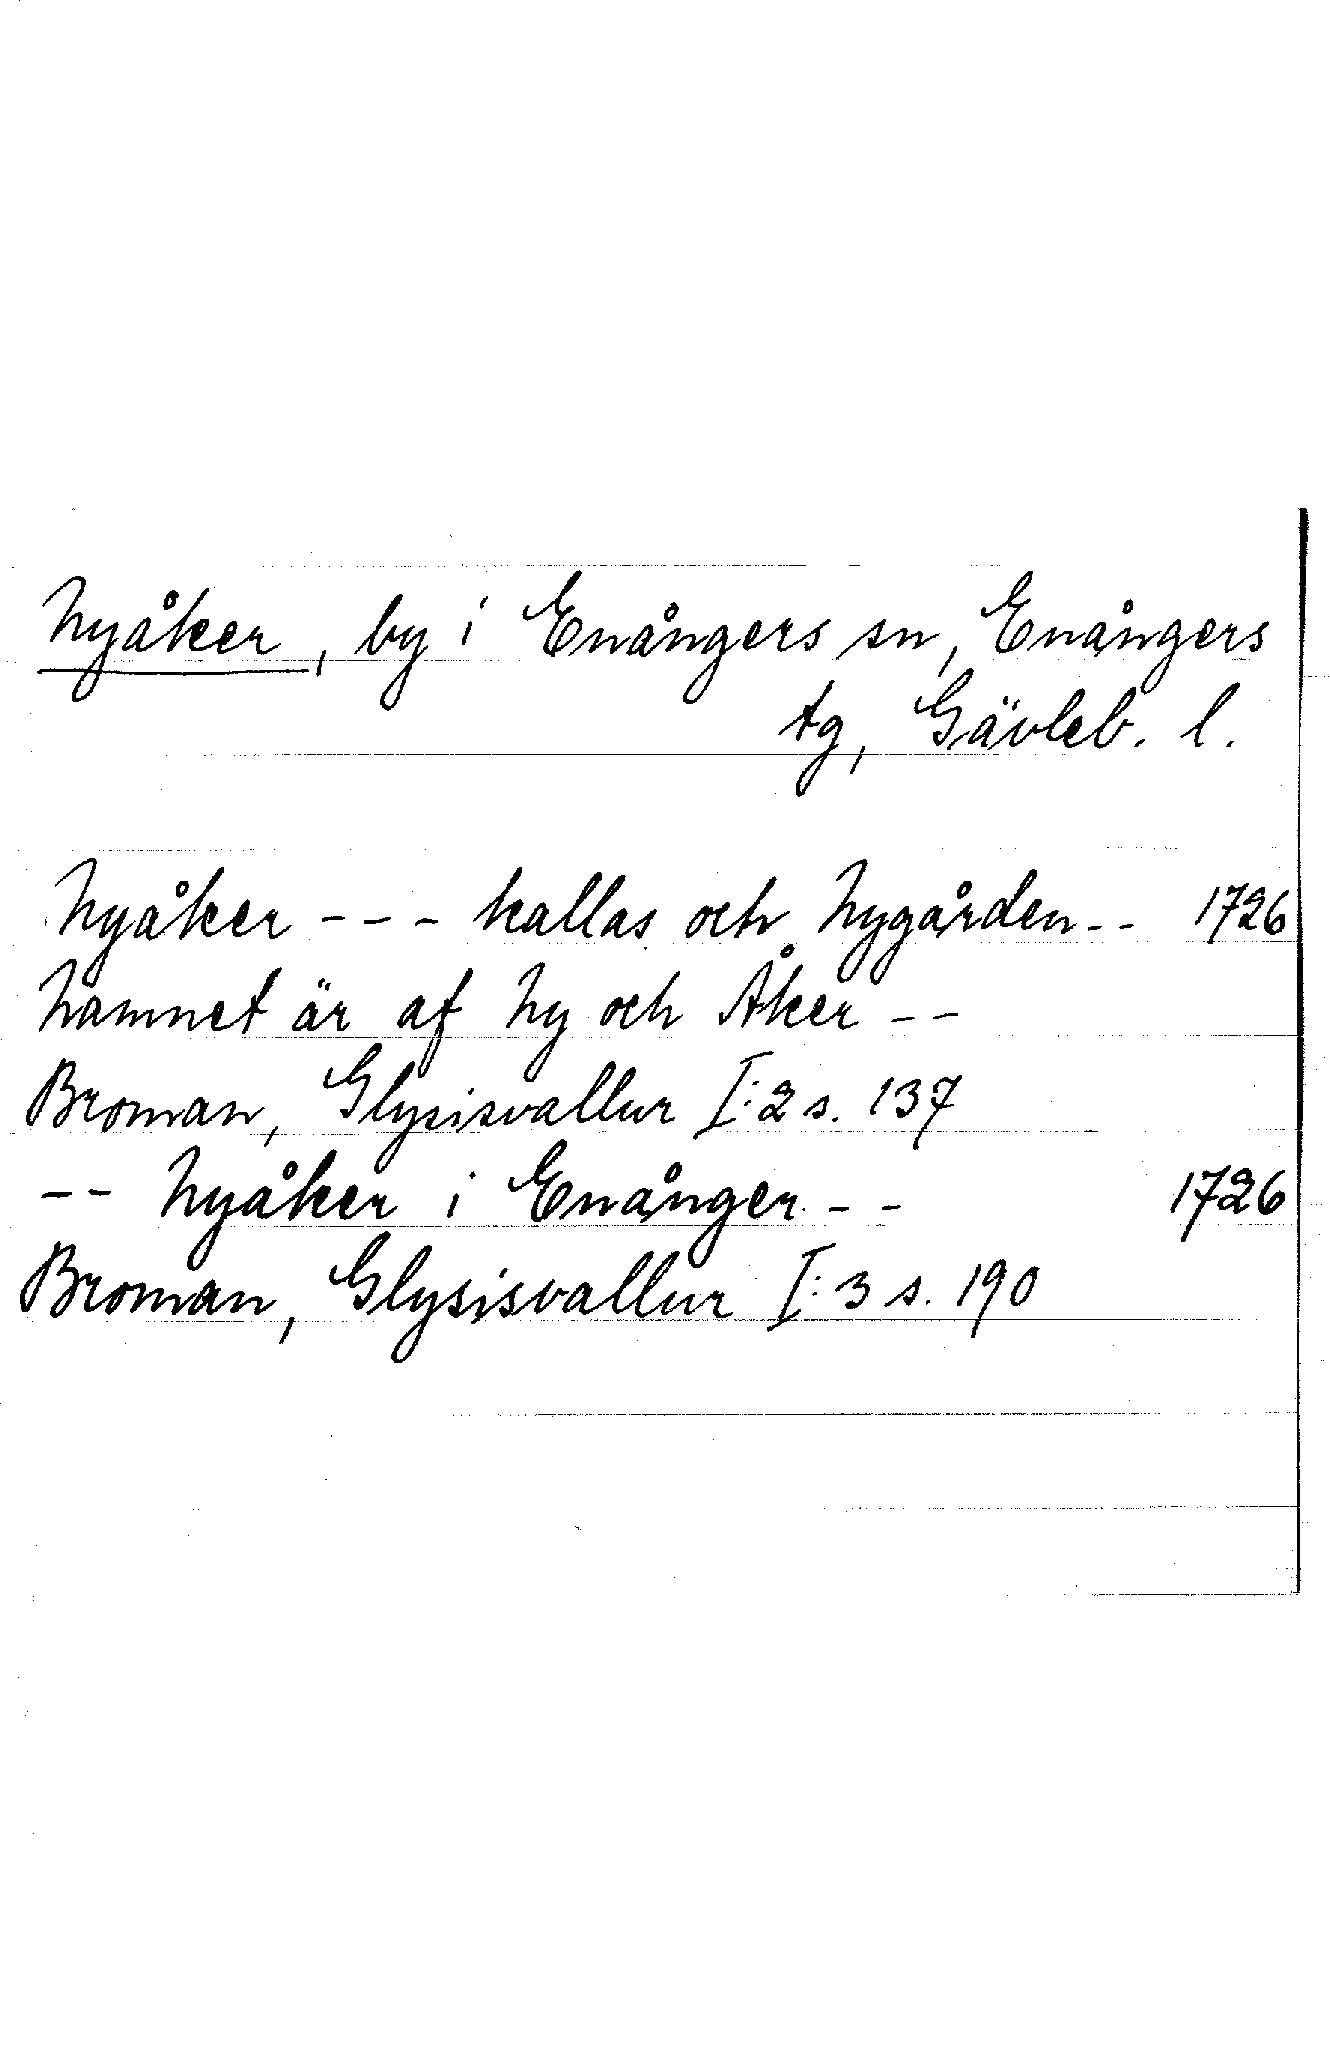 Nyåker, by i Enångers sn, Enångers
tg, Gävleb. l.
Nyåker --- kallas och Nygården -- 1726
Namnet är af Ny och Åker --
Broman, Glysisvallur I:2 s. 137
-- Nyåker i Enånger -- 1726
Broman, Glysisvallur I:3 s. 190